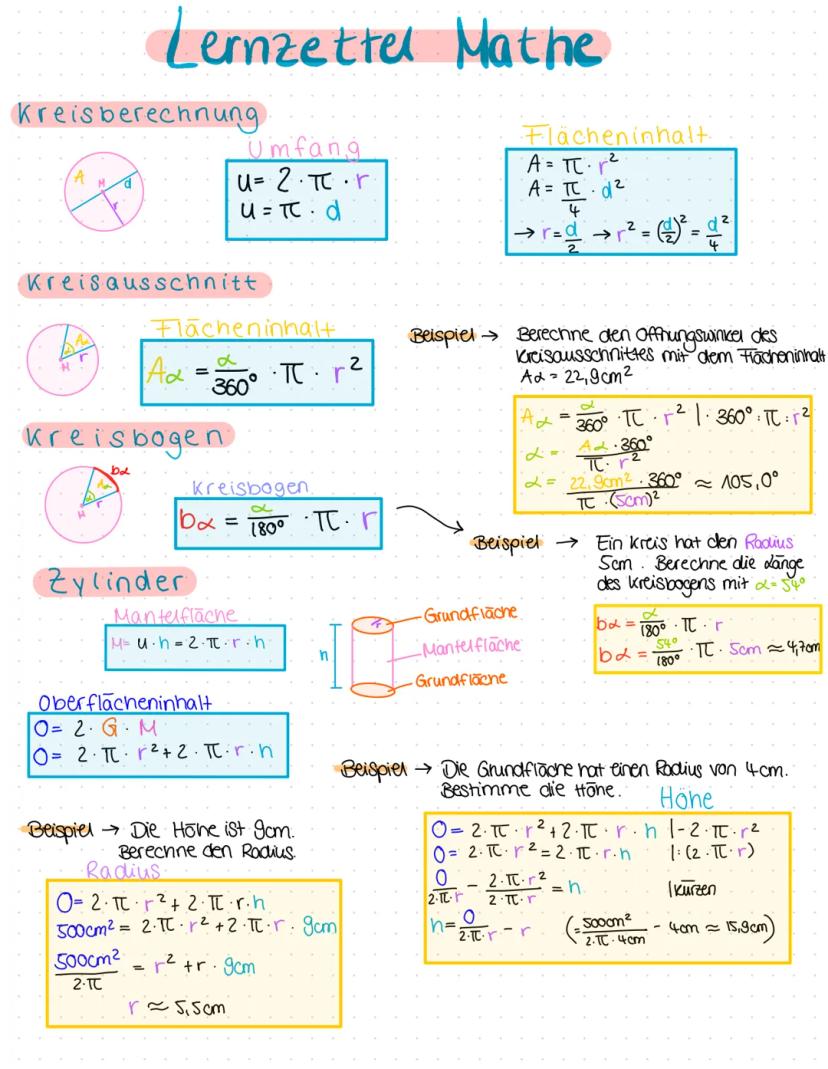 Lernzettel Mathe
Kreisberechnung
A M d r
Umfang
u = 2 · π · r
u = π · d
Flächeninhalt
A = π · r²
A = π/4 · d²
→ r = d/2 → r² = (d/2)² = d²/4
Kreisausschnitt
α Aα M r
Flächeninhalt
Aα = α/360° · π · r²
Beispiel → Berechne den Öffnungswinkel des
Kreisausschnittes mit dem Flächeninhalt
Aα = 22,9cm²
Aα = α/360° · π · r² | · 360° : π : r²
α = Aα · 360°/π · r²
α = 22,9cm² · 360°/π · (5cm)² ≈ 105,0°
Kreisbogen
bα α Aα M r
Kreisbogen
bα = α/180° · π · r
Beispiel → Ein Kreis hat den Radius
5cm. Berechne die Länge
des Kreisbogens mit α = 54°
bα = α/180° · π · r
bα = 54°/180° · π · 5cm ≈ 4,7cm
Zylinder
Mantelfläche
M = u · h = 2 · π · r · h
h r
Grundfläche
Mantelfläche
Grundfläche
Oberflächeninhalt
O = 2 · G · M
O = 2 · π · r² + 2 · π · r · h
Beispiel → Die Grundfläche hat einen Radius von 4cm.
Bestimme die Höhe.
Höhe
O = 2 · π · r² + 2 · π · r · h | - 2 · π · r²
O = 2 · π · r² = 2 · π · r · h | : (2 · π · r)
O/2·π·r - 2·π·r²/2·π·r = h | kürzen
h = O/2·π·r - r (= 500cm²/2·π·4cm - 4cm ≈ 15,9cm)
Beispiel → Die Höhe ist 9cm.
Berechne den Radius.
Radius
O = 2 · π · r² + 2 · π · r · h
500cm² = 2 · π · r² + 2 · π · r · 9cm
500cm²/2·π = r² + r · 9cm
r ≈ 5,5cm